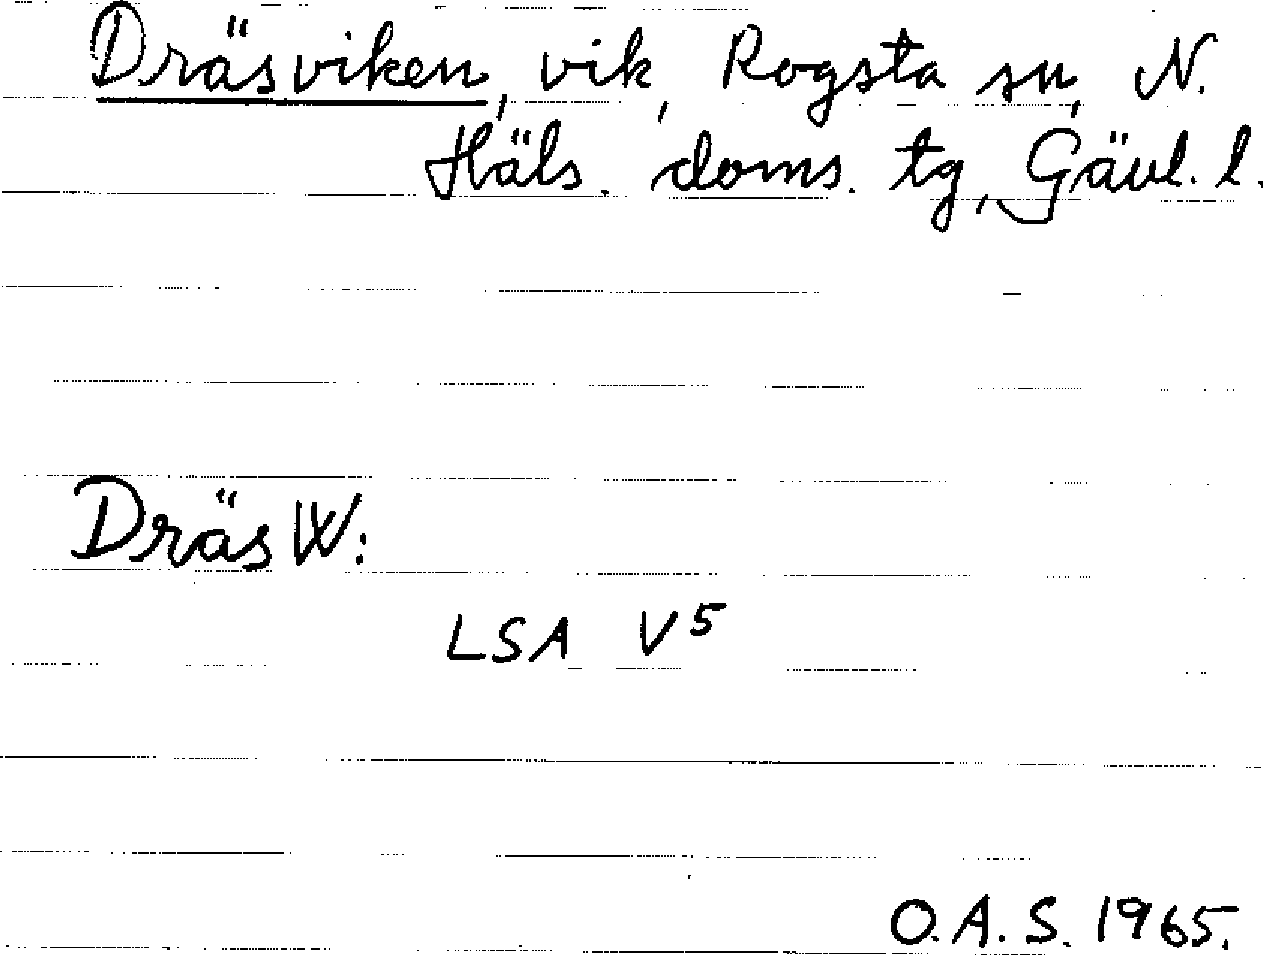 Dräsviken, vik, Rogsta sn, N.
Häls. doms. tg, Gävl. l.
Dräs W:
LSA V5
O.A.S. 1965.